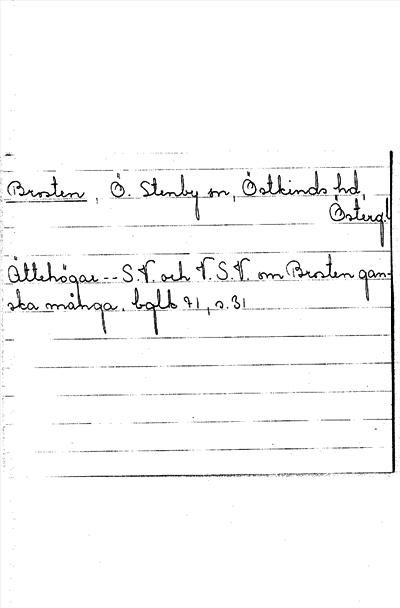 Brosten, Ö. Stenby sn, Östkinds hd,
Österg.
Ättehögar -- S.V. och V.S.V. om Brosten gan-
ska många. bglb 71, s. 31